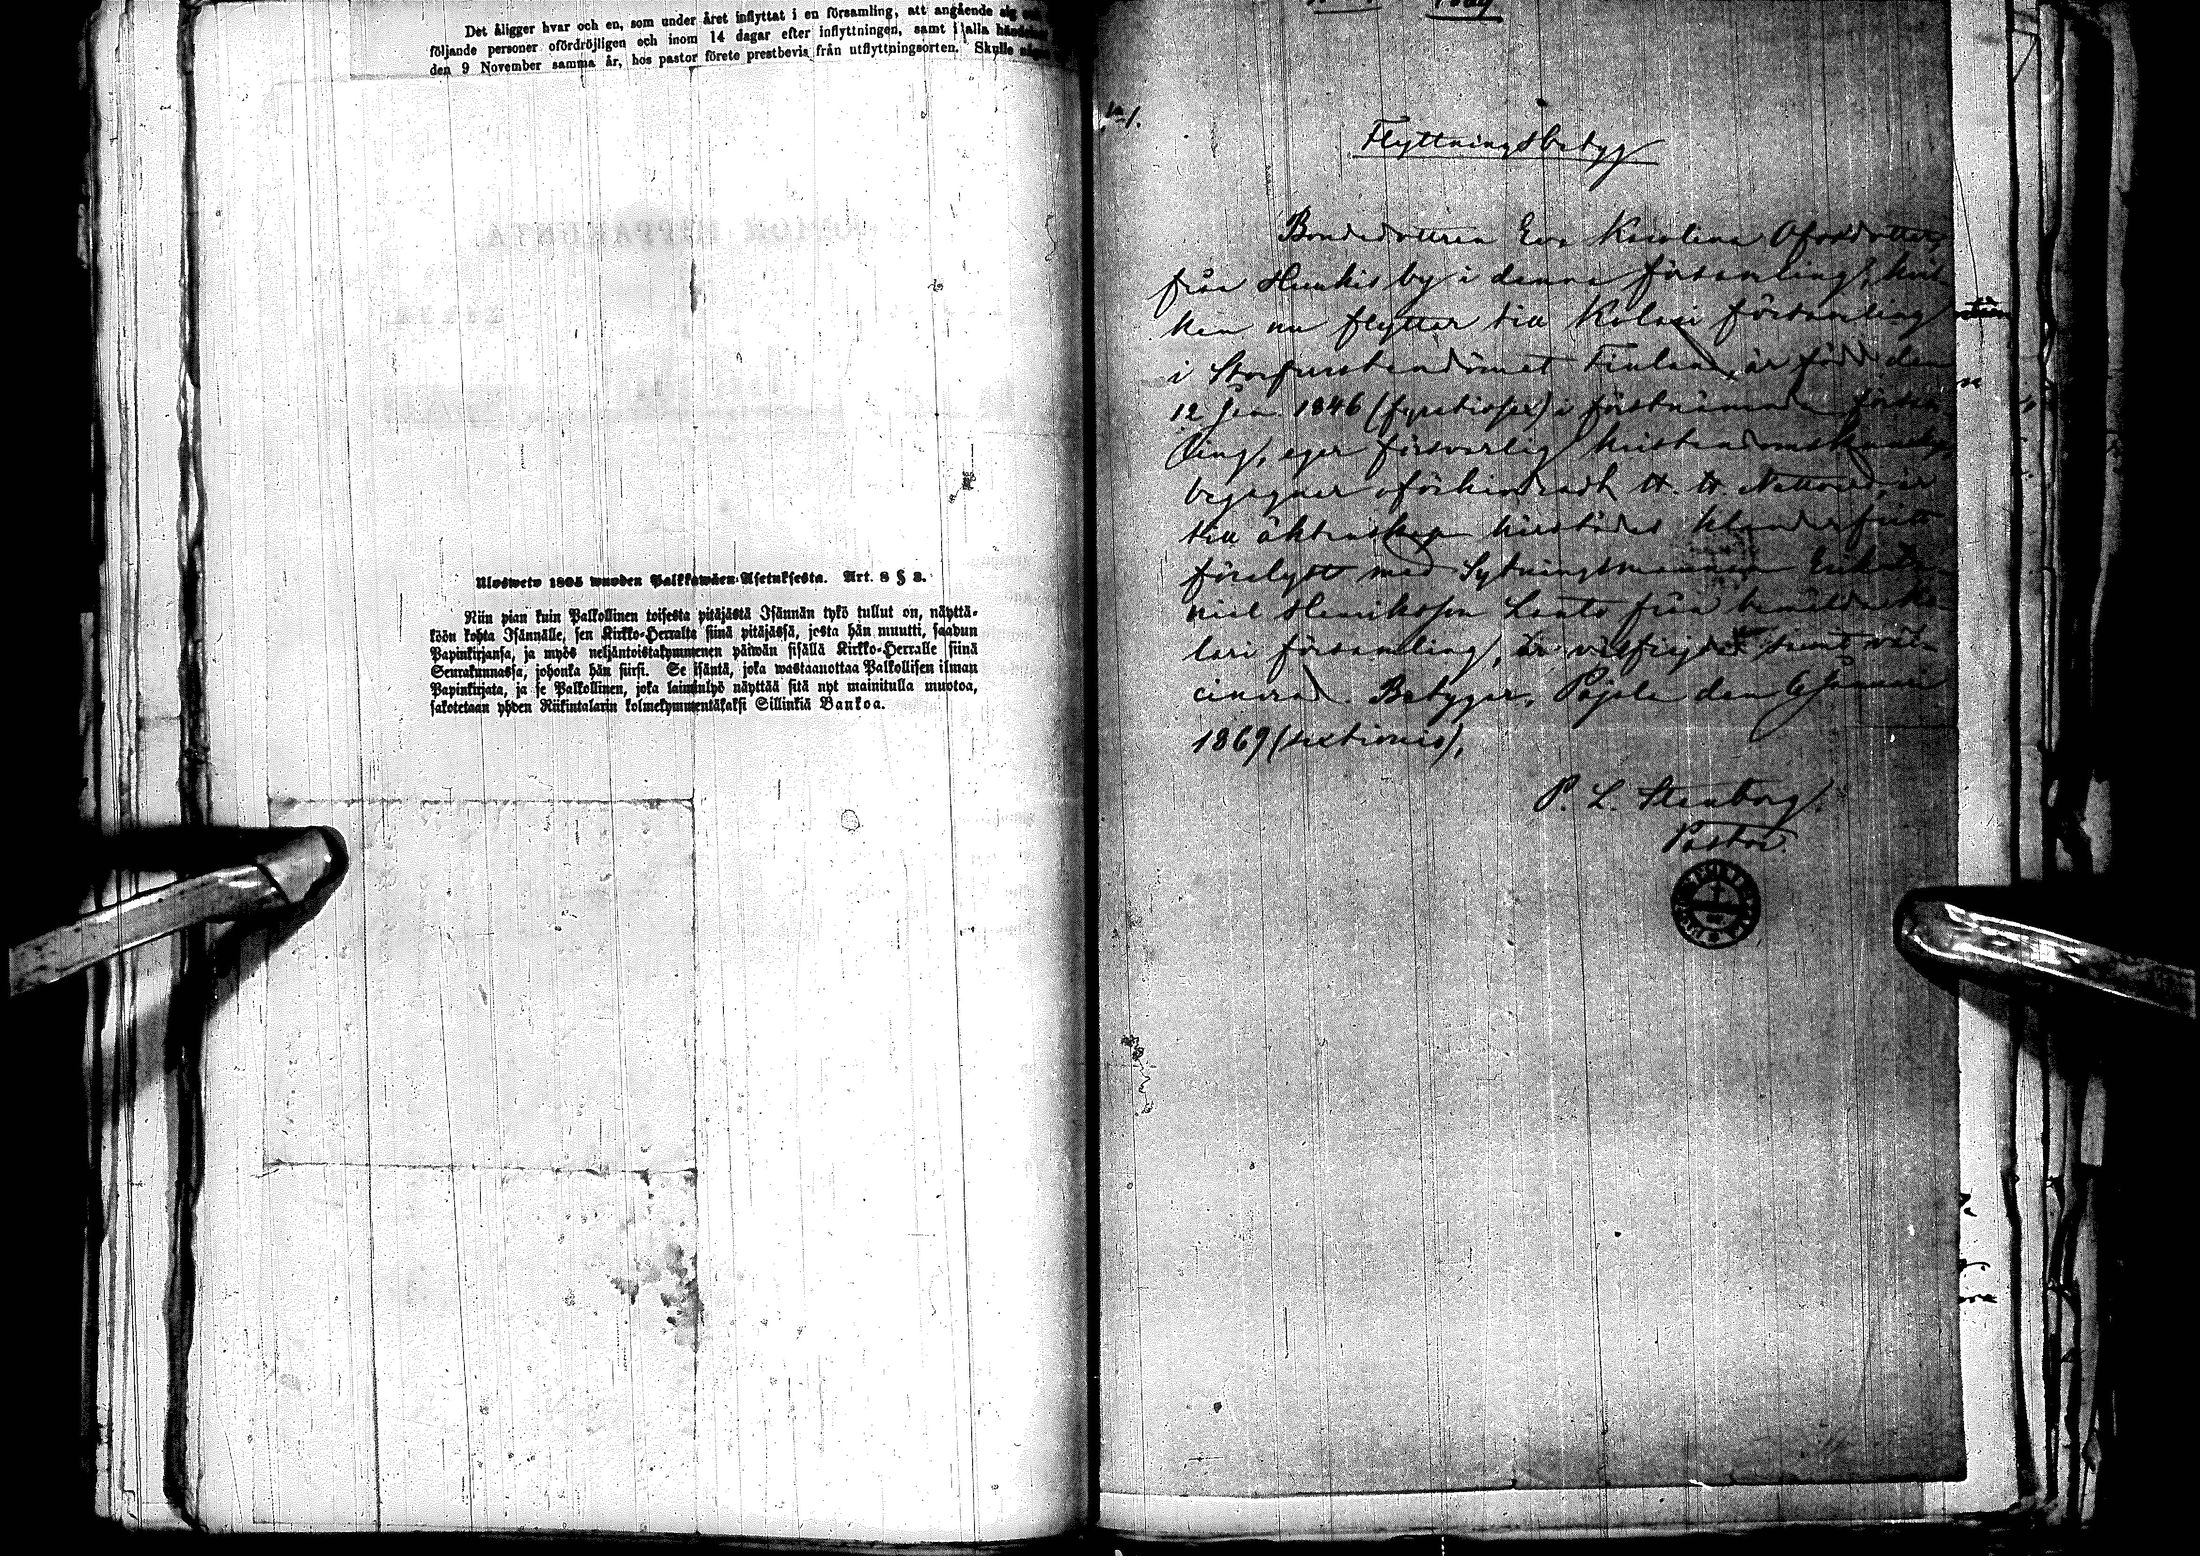 Det åligger hvar och en, som under året inflyttat i en församling, att angående sig och
följande personer ofördröjligen och inom 14 dagar efter inflyttningen, samt i alla händelser
den 9 November samma år, hos pastor förete prestbevis från utflyttningsorten. Skulle någon
Ulosweto 1805 wuoden Palkkawäen-Asetuksesta. Art. 8 § 3.
Niin pian kuin Palkollinen toisesta pitäjästä Isännän tykö tullut on, näyttä-
köön kohta Isännälle, sen Kirkko-Herralta siinä pitäjässä, josta hän muutti, saadun
Papinkirjansa, ja myös neljäntoistakymmenen päiwän sisällä Kirkko-Herralle siinä
Seurakunnassa, johonka hän siirsi. Se isäntä, joka wastaanottaa Palkollisen ilman
Papinkirjata, ja se Palkollinen, joka laiminlyö näyttää sitä nyt mainitulla muotoa,
sakotetaan yhden Riikintalarin kolmekymmentäkaksi Sillinkiä Bankoa.
N 1.
Flyttningsbetyg
Bondedottren Eva Karolina Olofsdotter
från Hunkis by i denna församling, hvil-
ken nu flyttar till Kolari församling
i Storfurstendömet Finland, är född den
12 Jan. 1846 (fyratiosex) i förstnämnda försam-
ling, eger försvarlig kristendomskunskap,
begagnar oförhindradt H. H. Nattvard, är
till äktenskap härstädes klanderfritt
förelyst med Sytningsmannen Erik Da-
niel Henriksson Lanto från bemälda Ko-
lari församling, är välfrejdad samt vac-
cinerad. Betygar, Pajala den 6 Januari
1869 (sextionio).
P. L. Stenborg
Pastor.